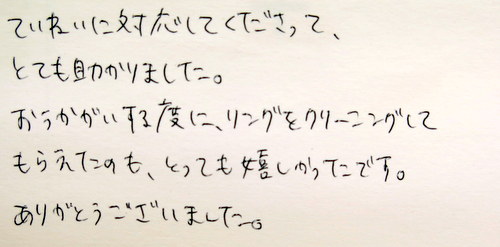 ていねいに対応してくださって、
とても助かりました。
おうかがいする度に、リングをクリーニングして
もらえたのも、とっても嬉しかったです。
ありがとうございました。